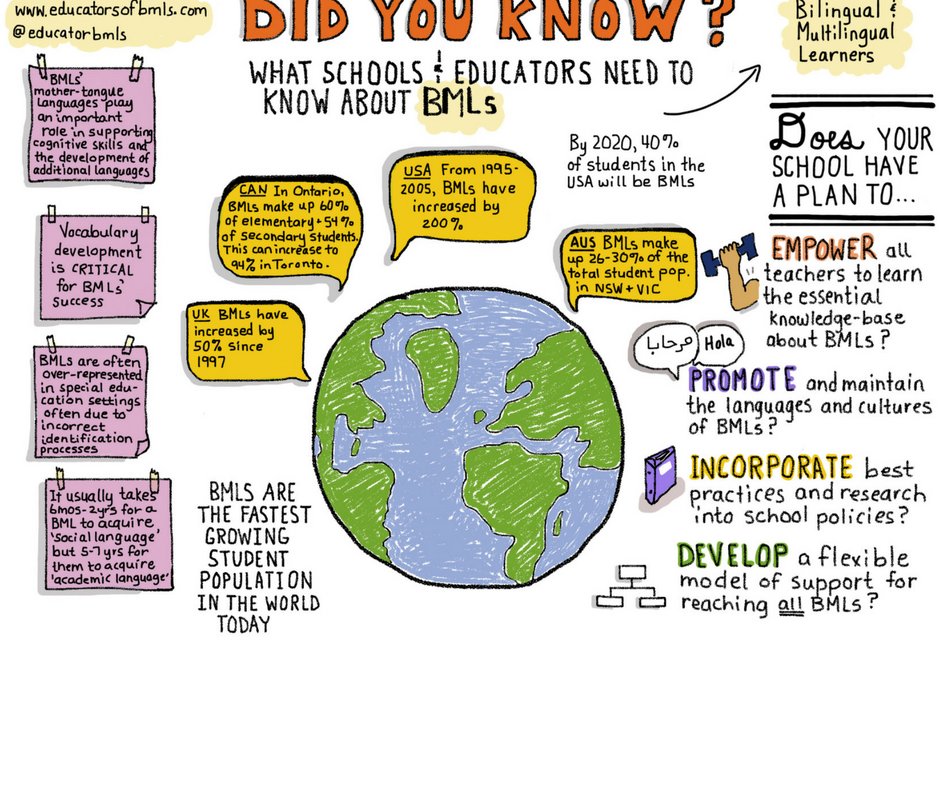 www.educatorsofbmls.com
@educatorbmls
DID YOU KNOW?
WHAT SCHOOLS & EDUCATORS NEED TO
KNOW ABOUT BMLs
Bilingual &
Multilingual
Learners
BMLs'
mother-tongue
languages play
an important
role in supporting
cognitive skills and
the development of
additional languages
Vocabulary
development
is CRITICAL
for BMLs'
success
BMLs are often
over-represented
in special edu-
cation settings
often due to
incorrect
identification
processes
It usually takes
6mos-2yrs for a
BML to acquire
'social language'
but 5-7 yrs for
them to acquire
'academic language'
UK BMLs have
increased by
50% since
1997
CAN In Ontario,
BMLs make up 60%
of elementary + 54%
of secondary students.
This can increase to
94% in Toronto.
USA From 1995-
2005, BMLs have
increased by
200%
By 2020, 40%
of students in the
USA will be BMLs
AUS BMLs make
up 26-30% of the
total student pop.
in NSW + VIC
BMLS ARE
THE FASTEST
GROWING
STUDENT
POPULATION
IN THE WORLD
TODAY
Does YOUR
SCHOOL HAVE
A PLAN TO...
EMPOWER all
teachers to learn
the essential
knowledge-base
about BMLs?
مرحبا Hola
PROMOTE and maintain
the languages and cultures
of BMLs?
INCORPORATE best
practices and research
into school policies?
DEVELOP a flexible
model of support for
reaching all BMLs?